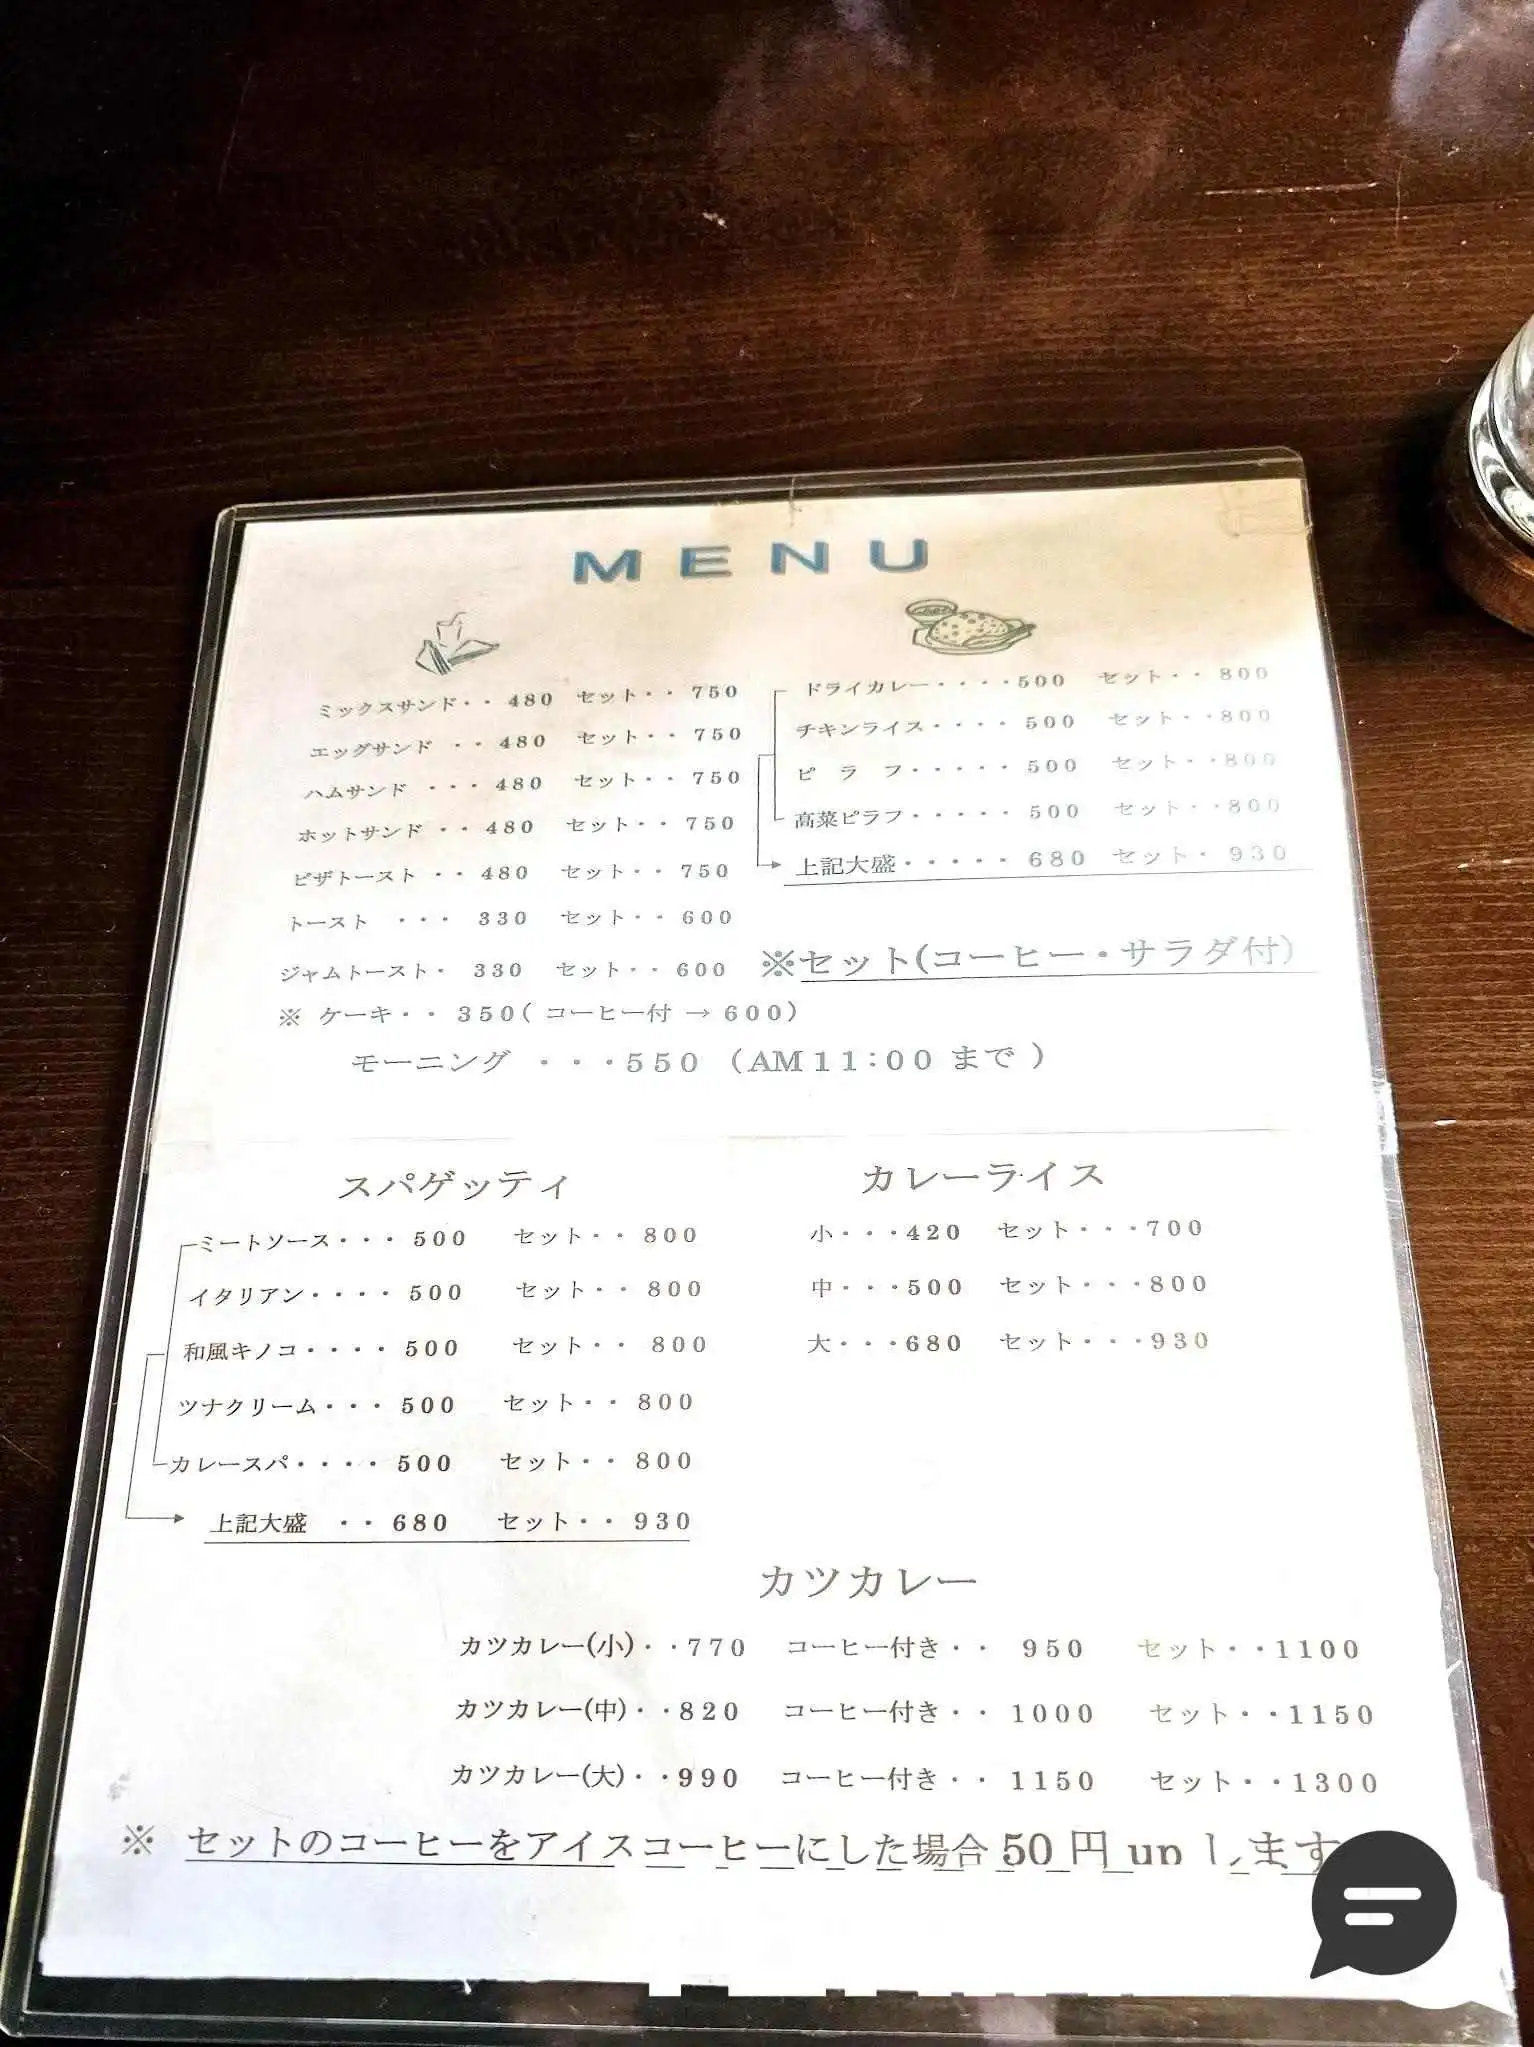 MENU
ミックスサンド・・480 セット・・750
エッグサンド ・・480 セット・・750
ハムサンド ・・・480 セット・・750
ホットサンド ・・480 セット・・750
ピザトースト ・・480 セット・・750
トースト ・・・ 330 セット・・600
ジャムトースト・ 330 セット・・600
※ ケーキ・・ 350( コーヒー付 → 600)
ドライカレー・・・・500 セット・・800
チキンライス・・・・500 セット・・800
ピ ラ フ・・・・・500 セット・・800
高菜ピラフ・・・・・500 セット・・800
上記大盛・・・・・680 セット・930
※セット(コーヒー・サラダ付)
モーニング ・・・550 (AM11:00 まで )
スパゲッティ
ミートソース・・・500 セット・・800
イタリアン・・・・500 セット・・800
和風キノコ・・・・500 セット・・800
ツナクリーム・・・500 セット・・800
カレースパ・・・・500 セット・・800
上記大盛 ・・680 セット・・930
カレーライス
小・・・420 セット・・・700
中・・・500 セット・・・800
大・・・680 セット・・・930
カツカレー
カツカレー(小)・・770 コーヒー付き・・ 950 セット・・1100
カツカレー(中)・・820 コーヒー付き・・ 1000 セット・・1150
カツカレー(大)・・990 コーヒー付き・・ 1150 セット・・1300
※ セットのコーヒーをアイスコーヒーにした場合 50 円 up します